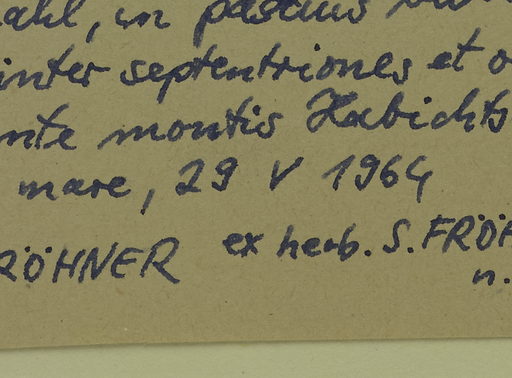 ahl, in pascuis
inter septentriones et o
nte montis Habichts
mare, 29 V 1964
RÖHNER ex herb. S. FRÖH
n.